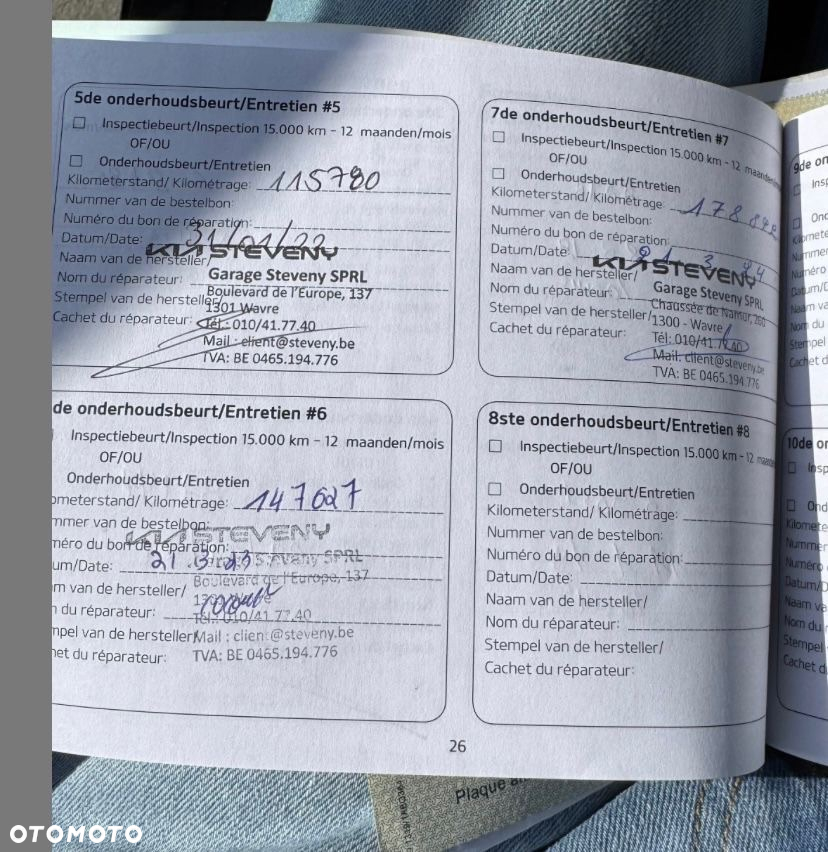 5de onderhoudsbeurt/Entretien #5
Inspectiebeurt/Inspection 15.000 km - 12 maanden/mois
OF/OU
Onderhoudsbeurt/Entretien
Kilometerstand/ Kilométrage: 115780
Nummer van de bestelbon:
Numéro du bon de réparation:
Datum/Date: 31/01/22
KIA STEVENY
Naam van de hersteller/
Nom du réparateur: Garage Steveny SPRL
Boulevard de l'Europe, 137
Stempel van de hersteller/
1301 Wavre
Cachet du réparateur: Tél: 010/41.77.40
Mail : client@steveny.be
TVA: BE 0465.194.776
de onderhoudsbeurt/Entretien #6
Inspectiebeurt/Inspection 15.000 km - 12 maanden/mois
OF/OU
Onderhoudsbeurt/Entretien
ometerstand/ Kilométrage: 147627
mmer van de bestelbon:
KIA STEVENY
méro du bon de réparation:
Garage Steveny SPRL
um/Date: 21.3.23
Boulevard de l'Europe, 137
m van de hersteller/
m du réparateur: Tél: 010/41.77.40
mpel van de hersteller/ Mail : client@steveny.be
het du réparateur: TVA: BE 0465.194.776
7de onderhoudsbeurt/Entretien #7
Inspectiebeurt/Inspection 15.000 km - 12 maanden
OF/OU
Onderhoudsbeurt/Entretien
Kilometerstand/ Kilométrage:
Nummer van de bestelbon:
Numéro du bon de réparation:
Datum/Date:
KIA STEVENY
Naam van de hersteller/
Nom du réparateur: Garage Steveny SPRL
Chaussée de Namur, 260
Stempel van de hersteller/
1300 - Wavre
Cachet du réparateur: Tél: 010/41.77.40
Mail: client@steveny.be
TVA: BE 0465.194.776
8ste onderhoudsbeurt/Entretien #8
Inspectiebeurt/Inspection 15.000 km - 12 maanden
OF/OU
Onderhoudsbeurt/Entretien
Kilometerstand/ Kilométrage:
Nummer van de bestelbon:
Numéro du bon de réparation:
Datum/Date:
Naam van de hersteller/
Nom du réparateur:
Stempel van de hersteller/
Cachet du réparateur:
9de on
Insp
Ond
Kilomete
Nummer
Numéro
Datum/D
Naam va
Nom du
Stempel
Cachet d
10de on
Insp
Ond
Kilomete
Nummer
Numéro
Datum/D
Naam va
Nom du r
Stempel
Cachet d
26
Plaque
OTOMOTO